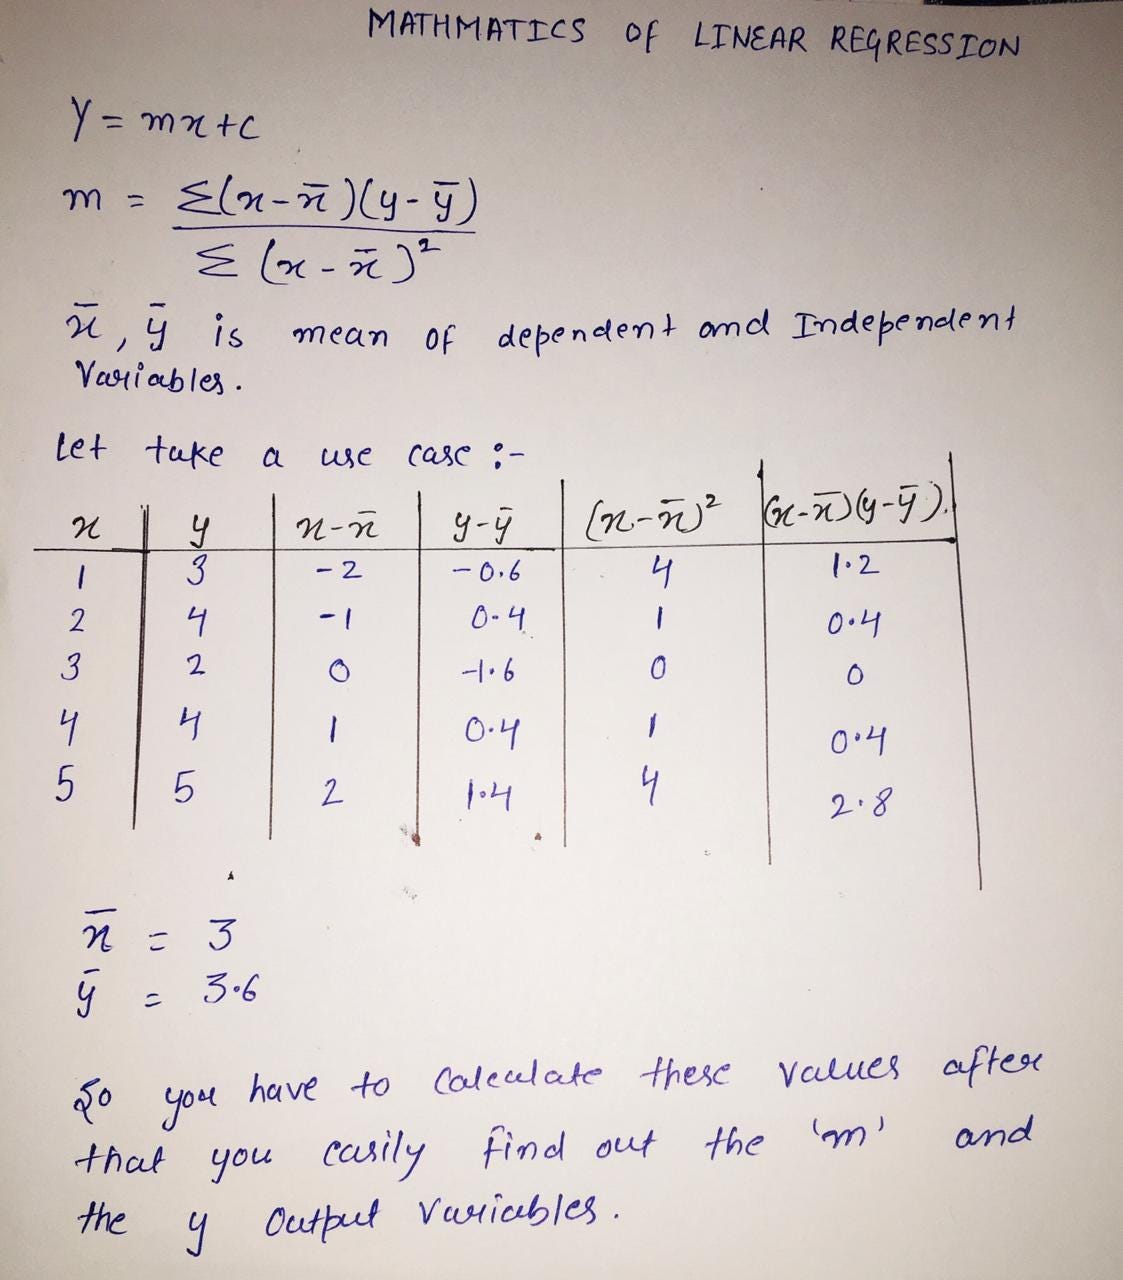 MATHMATICS OF LINEAR REGRESSION
Y = mx+c
m = Σ(x-x̄)(y-ȳ)
Σ (x-x̄)²
x̄, ȳ is mean of dependent and Independent
Variables.
Let take a use case :-
x y x-x̄ y-ȳ (x-x̄)² (x-x̄)(y-ȳ).
1 3 -2 -0.6 4 1.2
2 4 -1 0.4 1 0.4
3 2 0 -1.6 0 0
4 4 1 0.4 1 0.4
5 5 2 1.4 4 2.8
x̄ = 3
ȳ = 3.6
So you have to Calculate these values after
that you easily find out the 'm' and
the y Output Variables.